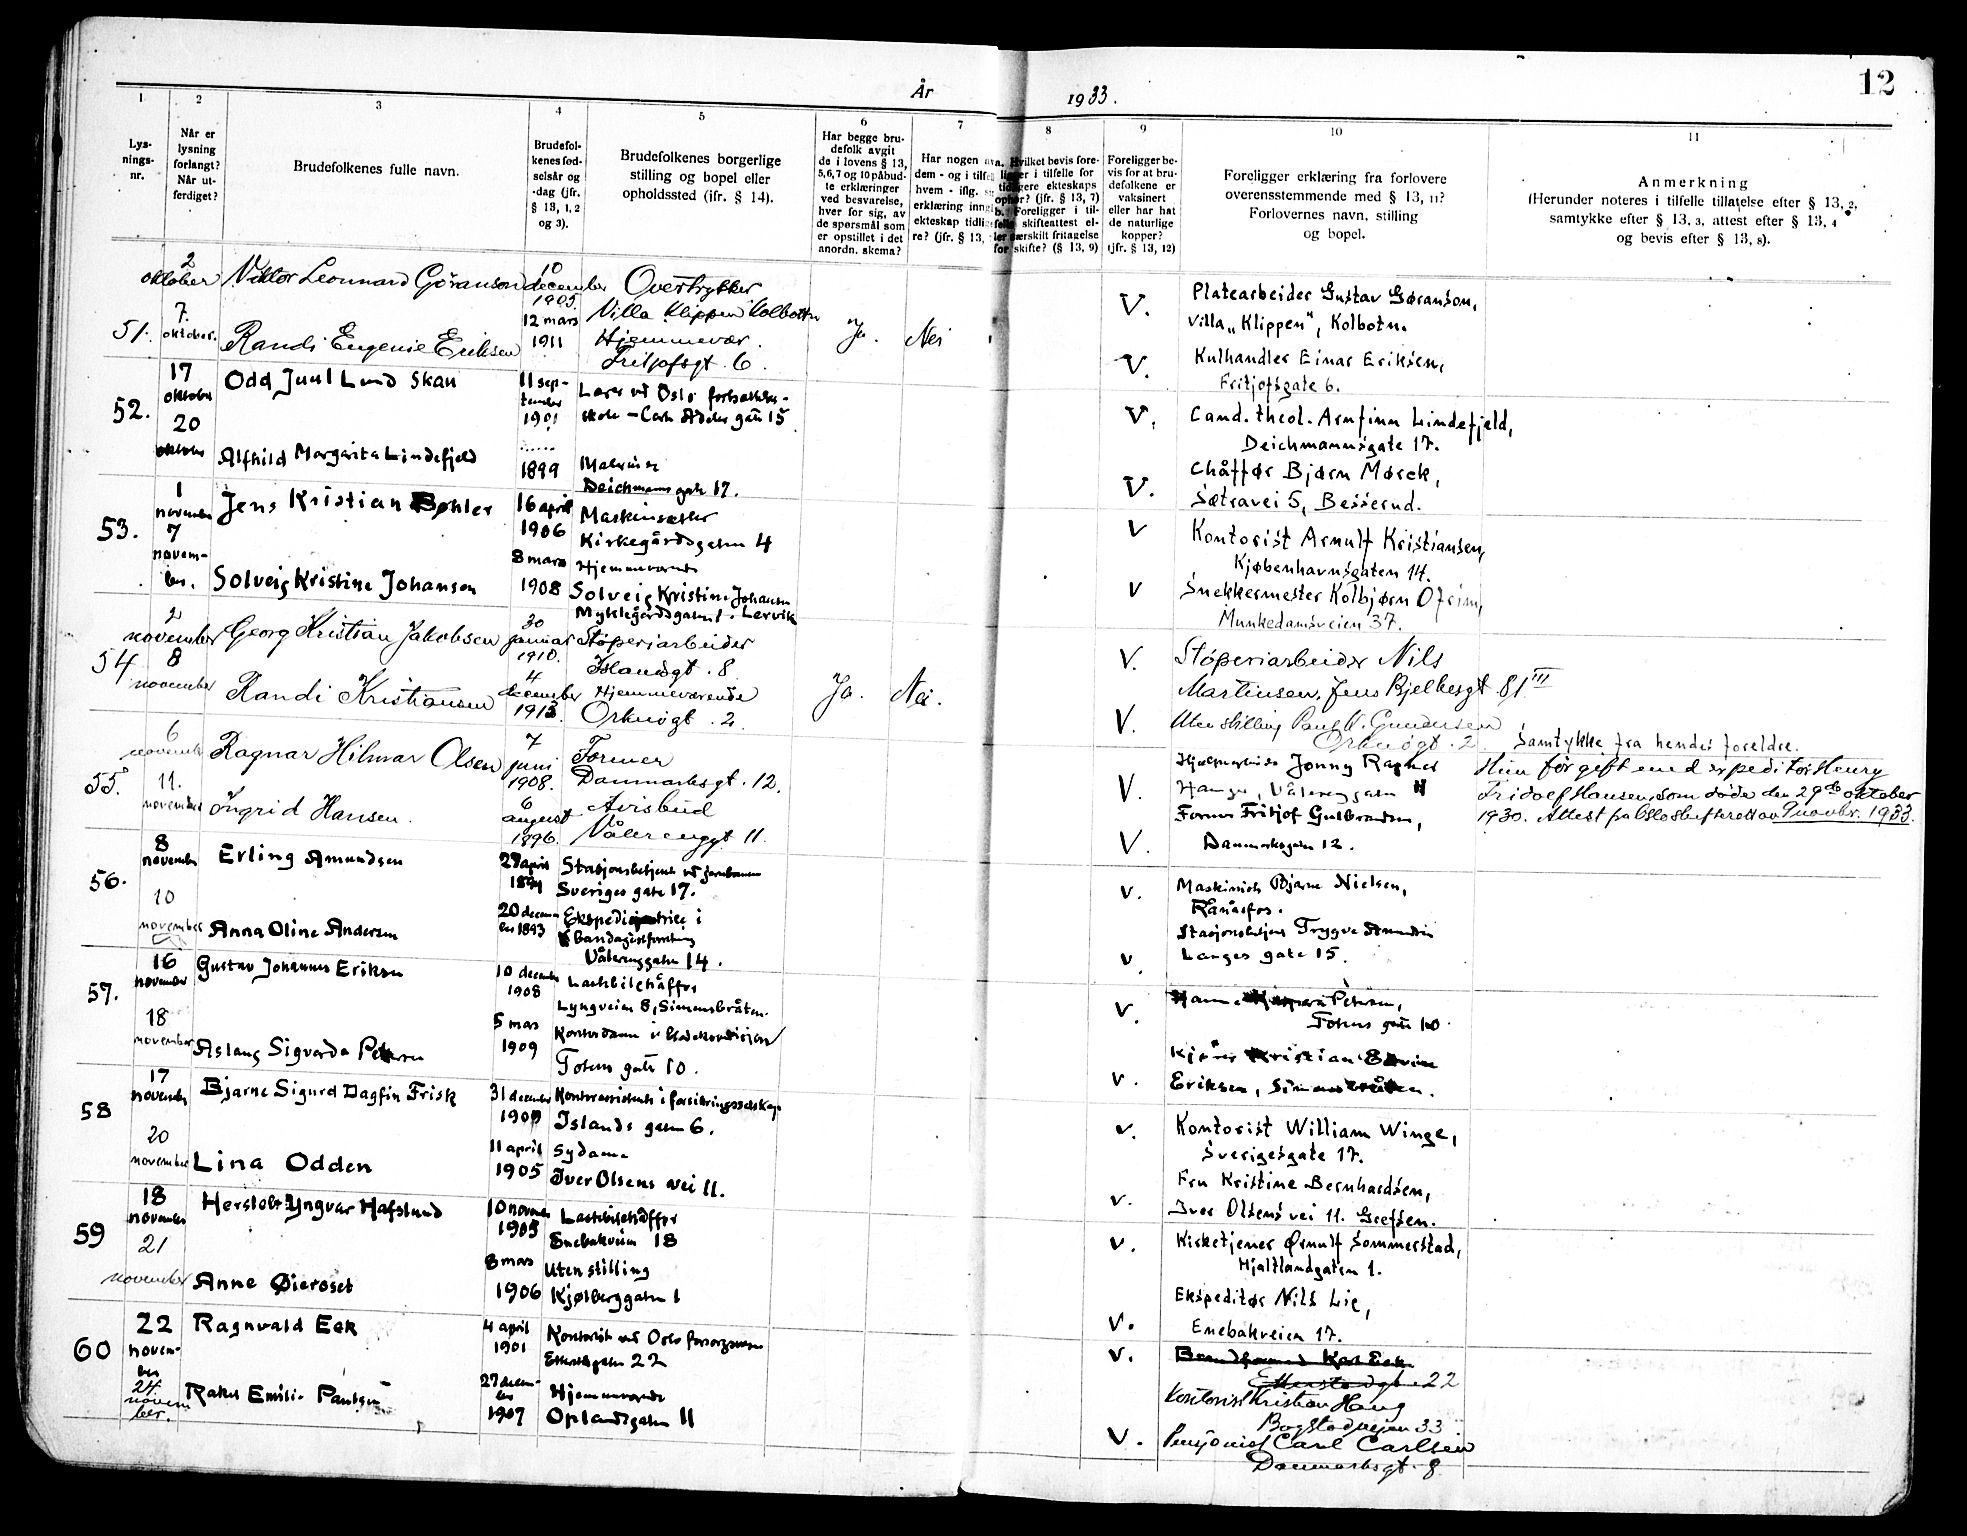 12
År 1933.
1 2 3 4 5 6 7 8 9 10 11
Lys-
nings-
nr.
Når er
lysning
forlangt?
Når ut-
ferdiget?
Brudefolkenes fulle navn.
Brudefol-
kenes fød-
selsår og
-dag (jfr.
§ 13, 1, 2
og 3).
Brudefolkenes borgerlige
stilling og bopel eller
opholdssted (jfr. § 14).
Har begge bru-
defolk avgit
de i lovens § 13,
5,6,7 og 10 påbud-
te erklæringer
ved besvarelse,
hver for sig, av
de spørsmål som
er opstillet i det
anordn. skema?
Har nogen av
dem - og i tilfelle
hvem - iflg.
erklæring inngått
ekteskap tidlige-
re? (jfr. § 13,
a. Hvilket bevis fore-
ligger i tilfelle for
tidligere ekteskaps
ophør? (jfr. § 13, 7)
b. Foreligger i til-
felle skifteattest el-
ler særskilt fritagelse
for skifte? (§ 13, 9)
Foreligger be-
vis for at bru-
defolkene er
vaksinert
eller har hat
de naturlige
kopper?
(jfr. § 13, 12)
Foreligger erklæring fra forlovere
overensstemmende med § 13, 11?
Forlovernes navn, stilling
og bopel.
Anmerkning
(Herunder noteres i tilfelle tillatelse efter § 13, 2,
samtykke efter § 13, 3, attest efter § 13, 4
og bevis efter § 13, 8).
51.
2 oktober
7. oktober.
Viktor Leonnard Göranson
10 december 1905
Overtrykker
Villa Klippen Kolbotn
V.
Platearbeider Gustav Gøranson,
Villa "Klippen", Kolbotn.
Randi Eugenie Eriksen
12 mars 1911
Hjemmevær.
Fritjofsgt. 6.
Ja. Nei
V.
Kulhandler Einar Eriksen,
Fritjofsgate 6.
52.
17 oktober
20 oktober
Odd Juul Lund Skau
11 sep-
tember
1901
Lærer ved Oslo fortsettelses-
skole - Carl Adelers gate 15
V.
Cand. theol. Arnfinn Lindefjeld,
Deichmannsgate 17.
Alfhild Margarita Lindefjeld
1899
Malerinne
Deichmans gate 17.
V.
Chåffør Bjørn Mørck,
Sætravei 5, Besserud.
53.
1 november
7 novem-
ber.
Jens Kristian Bøhler
16 april
1906
Maskinsetter
Kirkegårdsgaten 4
V
Kontorist Arnulf Kristiansen,
Kjøbenhavnsgaten 14.
Solveig Kristine Johansen
8 mars
1908
Hjemmeværende
Solveig Kristine Johansen
Myklegårdsgaten 1. Lervik
V
Snekkermester Kolbjørn Ofrim,
Munkedamsveien 37.
54
2 november
8 november
Georg Kristian Jakobsen
30 januar
1910.
Støperiarbeider
Islandsgt. 8
V.
Støperiarbeider Nils
Martinsen, Jens Bjelkesgt 81 III
Randi Kristiansen
4 december
1913.
Hjemmeværende
Orknøgt. 2.
Ja. Nei.
V.
Uten stilling Paul V. Gundersen
Orknøgt. 2.
Samtykke fra hendes foreldre.
55.
6 november
11. november
Ragnar Hilmar Olsen
7 juni
1908.
Former
Danmarksgt. 12.
V.
Hjelpearbeider Jonny Ragnar
Hansen, Vålerenggaten 11
Hun før gift med expeditør Henry
Fridolf Hansen, som døde den 29de oktober
1930. Attest fra Oslo skifterett av 9 novbr. 1933.
Ingrid Hansen.
6 august
1896.
Avisbud
Vålerenggt 11.
V.
Former Fritjof Gulbrandsen,
Danmarksgaten 12.
56.
8 november
10 november
Erling Amundsen
27 april
1894
Stasjonsbetjent ved jernbanen
Sveriges gate 17.
v.
Maskinist Bjarne Nielsen,
Rånåsfos.
Anna Oline Andersen
20 decem-
ber 1893
Ekspeditrise i
Bandagistforretning
Vålerenggaten 14.
v.
Stasjonsbetjent Trygve Amundsen
Langes gate 15.
57.
16 november
18 november
Gustav Johannes Eriksen
10 december
1908
Lastebilchåffør
Lyngveien 8, Simensbråten.
v.
Petersen,
Totens gate 10.
Aslaug Sigvarda Petersen
5 mars
1909
Kontordame i
Totens gate 10.
v.
Kjører Kristian Edvin
Eriksen, Simensbråten.
58
17 november
20 november
Bjarne Sigurd Dagfin Frisk
31 december
1909
Kontorassistent i forsikringsselskap
Islands gaten 6.
v.
Kontorist William Winge,
Sverigesgate 17.
Lina Odden
11 april
1905
Sydame
Iver Olsens vei 11.
v.
Fru Kristine Bernhardsen,
Iver Olsens vei 11. Grefsen.
59
18 november
21 november
Herslob Yngvar Hafslund
10 november
1905
Lastebilchåffør
Enebakveien 18
v.
Kirketjener Ørnulf Sommerstad,
Hjaltlandgaten 1.
Anne Øieroset
8 mars
1906
Uten stilling
Kjølberggaten 1
v.
Ekspeditør Nils Lie,
Enebakveien 17.
60
22 novem-
ber
24. novem
ber.
Ragnvald Eek
4 april
1901
Kontorist ved Oslo forsorgsvesen
Etterstadgaten 22
v.
Brandformand Karl Eek
Etterstadgt. 22
Kontorist Kristian Haug
Bogstadveien 33
Rakel Emilie Paulsen
27 decem-
ber
1907
Hjemmeværende
Oplandsgaten 11
v.
Pensjonist Carl Carlsen
Danmarksgt. 8